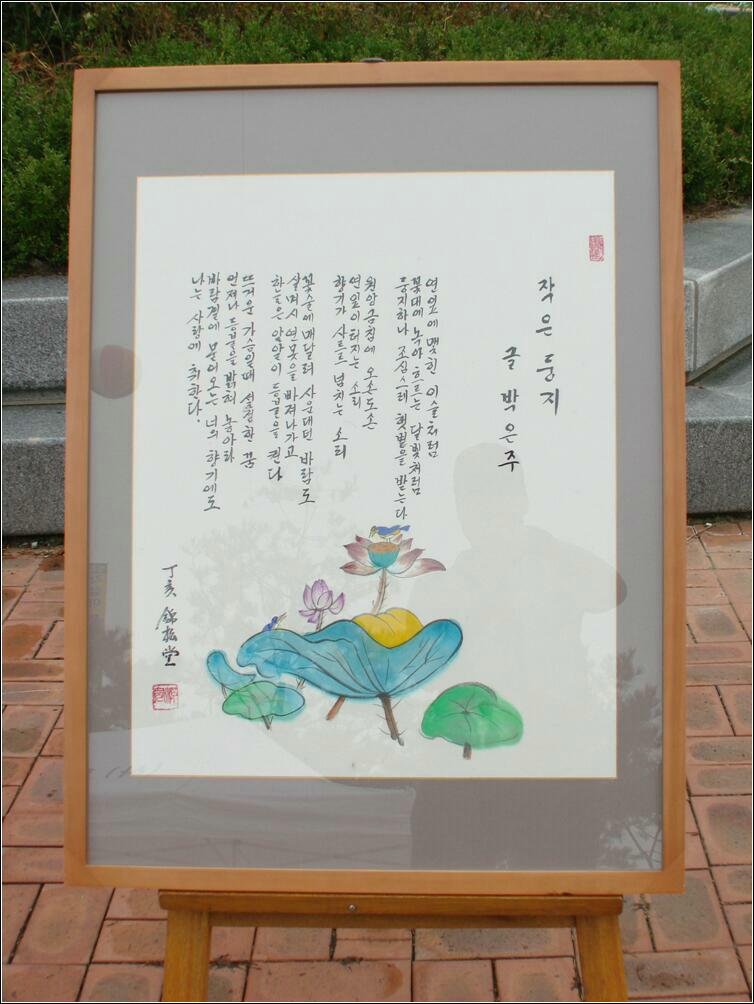 작은 둥지
글 박은주
연잎에 맺힌 이슬처럼
꽃대에 녹아 흐르는 달빛처럼
둥지하나 조심스레 햇볕을 받는다
원앙금침에 오손도손
연잎이 터지는 소리
향기가 사르르 넘치는 소리
꽃술에 매달려 사운대던 바람도
살며시 연못을 빠져나가고
하늘은 알알이 등불을 켠다
뜨거운 가슴일때 설정한 꿈
언제나 등불을 밝혀 놓아라
바람결에 묻어오는 너의 향기에도
나는 사랑에 취한다.
丁亥 錦松堂